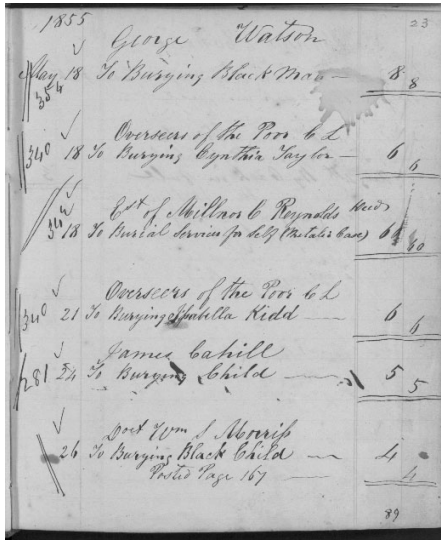 1855 23
George Watson
May 18 To Burying Black Man — 8
354 8
Overseers of the Poor C L
340 18 To Burying Cynthia Taylor — 6
6
Est of Millnor C Reynolds Decd
18 To Burial Services for Self (Metalic Case) 60
60
Overseers of the Poor C L
340 21 To Burying Isabella Kidd — 6
6
James Cahill
281 24 To Burying Child — 5 5
Doct Wm S Morriss
26 To Burying Black Child — 4
Posted Page 167 — 4
89